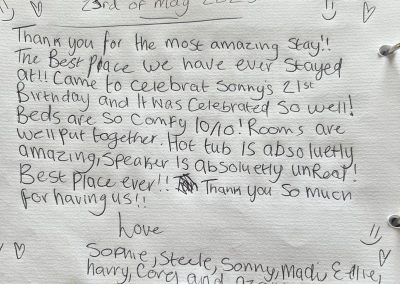 23rd of may
Thank you for the most amazing stay!!
The Best Place we have ever stayed
at!! Came to celebrat Sonny's 21st
Birthday and It was Celebrated so well!
Beds are so comfy 10/10! Rooms are
well put together. Hot tub is absoluetly
amazing, speaker is absoluetly unReal!
Best Place ever!! Thank you so much
for having us!!
Love
Sophie, Steele, Sonny, Madi, Ellie,
harry, and